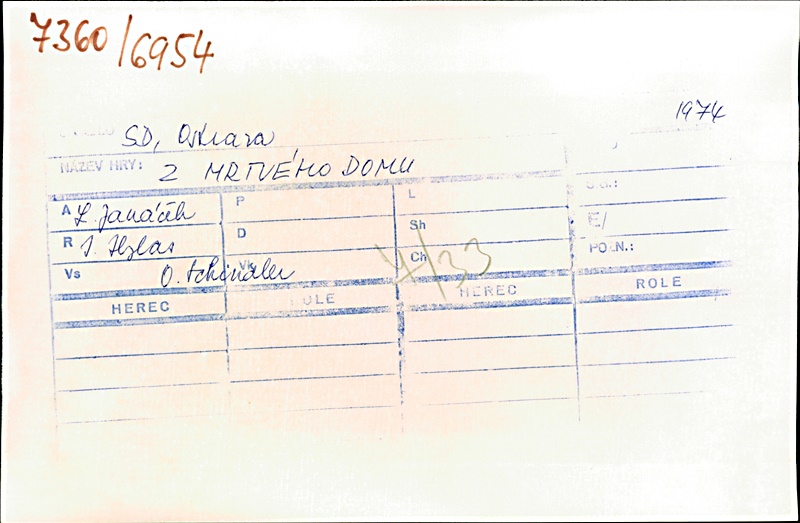 7360/6954
1974
SD, Ostrava
NÁZEV HRY: Z MRTVÉHO DOMU
A L. Janáček P L
R I. Hylas D Sh E/
Vs O. Schindler Vk Ch POZN.:
4/33
HEREC ROLE HEREC ROLE